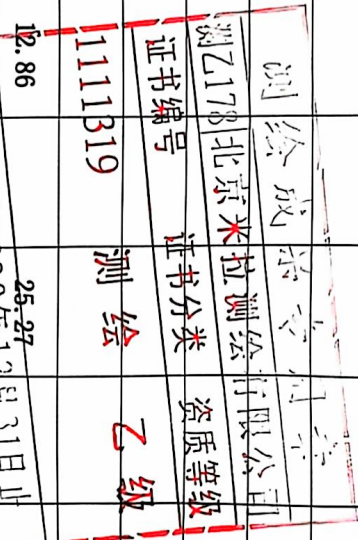 测绘成果专用章
测乙178 北京米拉测绘有限公司
证书编号 证书分类 资质等级
1111319 测绘 乙级
12.86 25.27
年12月31日止